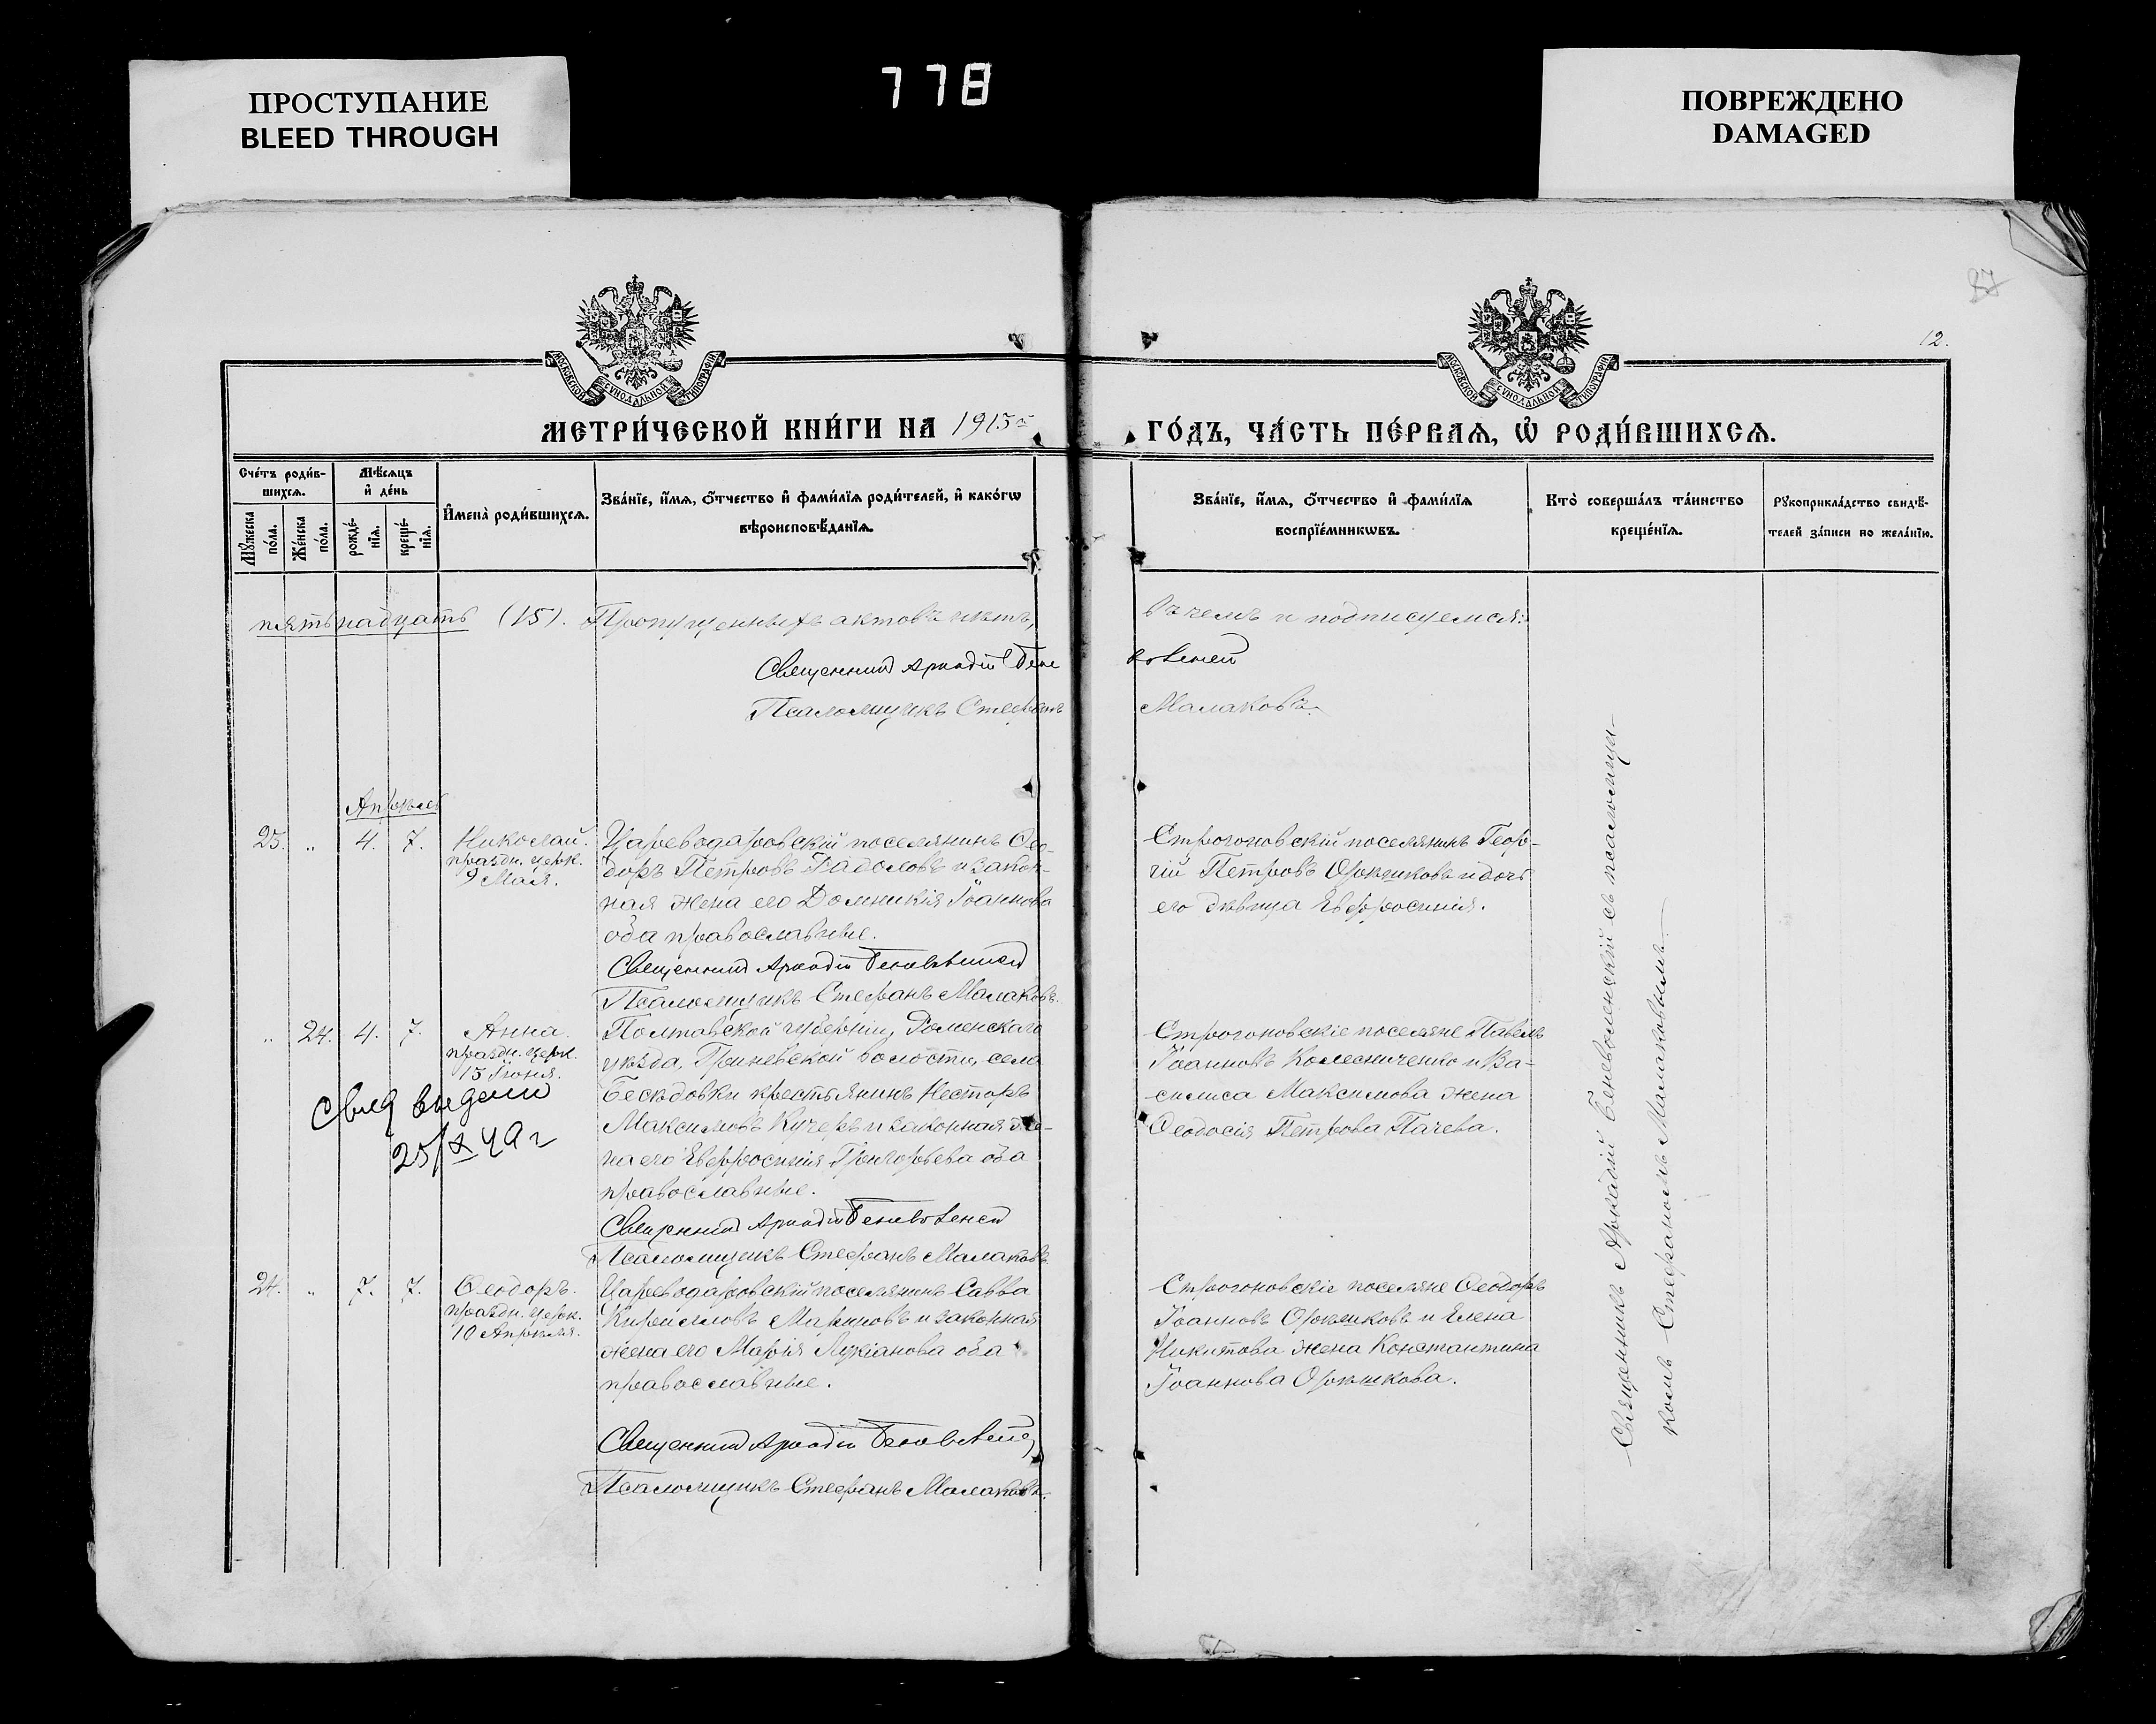 ПРОСТУПАНИЕ
BLEED THROUGH
778
ПОВРЕЖДЕНО
DAMAGED
87
12.
МОСКОВСКОЙ СѴНОДАЛЬНОЙ ТИПОГРАФІИ
МОСКОВСКОЙ СѴНОДАЛЬНОЙ ТИПОГРАФІИ
МЕТРИ́ЧЕСКОЙ КНИ́ГИ НА 1913 й
ГО́ДЪ, ЧА́СТЬ ПЕ́РВАѦ, Ѡ҆ РОДИ́ВШИХСѦ.
Сче́тъ роди́в-
шихсѧ.
Мꙋ́жеска по́ла.
Же́нска по́ла.
Мѣ́сѧцъ
и҆ де́нь
рожде́-
нїѧ.
креще́-
нїѧ.
И҆мена̀ роди́вшихсѧ.
Зва́нїе, и҆́мѧ, ѻ҆́тчество и҆ фами́лїѧ роди́телей, и҆ како́гѡ
вѣроисповѣ́данїѧ.
Зва́нїе, и҆́мѧ, ѻ҆́тчество и҆ фами́лїѧ
воспрїе́мникѡвъ.
Кто̀ соверша́лъ та́инство
креще́нїѧ.
Рꙋкоприкла́дство свидѣ́-
телей за́писи по жела́нїю.
пятьнадцать (15). Пропущенныхъ актовъ нѣтъ,
въ чемъ и подписуемся:
Священник Аркадий Беневоленский
Псаломщикъ Стефанъ Малаковъ.
Апрѣль
25. „ 4. 7. Николай.
праздн. церк.
9 Мая.
Цареводаровскій поселянинъ Ѳео-
доръ Петровъ Радоловъ и закон-
ная жена его Домникія Іоаннова
оба православные.
Священник Аркадий Беневоленский
Псаломщикъ Стефанъ Малаковъ.
Строгоновскій поселянинъ Геор-
гій Петровъ Орѣшковъ и дочь
его дѣвица Евфросинія.
„ 24. 4. 7. Анна.
праздн. церк.
15 Іюня.
Свид выдано
25/X 49 г
Полтавской губерніи, Роменскаго
уѣзда, Гриневской волости, села
Бесѣдовки крестьянинъ Несторъ
Максимовъ Кучеръ и законная же-
на его Евфросинія Григорьева оба
православные.
Священник Аркадий Беневоленский
Псаломщикъ Стефанъ Малаковъ
Строгоновскіе поселяне Павелъ
Іоанновъ Колесниченко и Ва-
силиса Максимова жена
Ѳеодосія Петрова Пачева.
24. „ 7. 7. Ѳеодоръ.
праздн. церк.
10 Апрѣля.
Цареводаровскій поселянинъ Савва
Кирилловъ Мариновъ и законная
жена его Марія Лукіанова оба
православные.
Священник Аркадий Беневоленский
Псаломщикъ Стефанъ Малаковъ.
Строгоновскіе поселяне Ѳеодоръ
Іоанновъ Орѣшковъ и Елена
Никитова жена Константина
Іоаннова Орѣшкова.
Священникъ Аркадій Беневоленскій съ псаломщи-
комъ Стефаномъ Малаковымъ